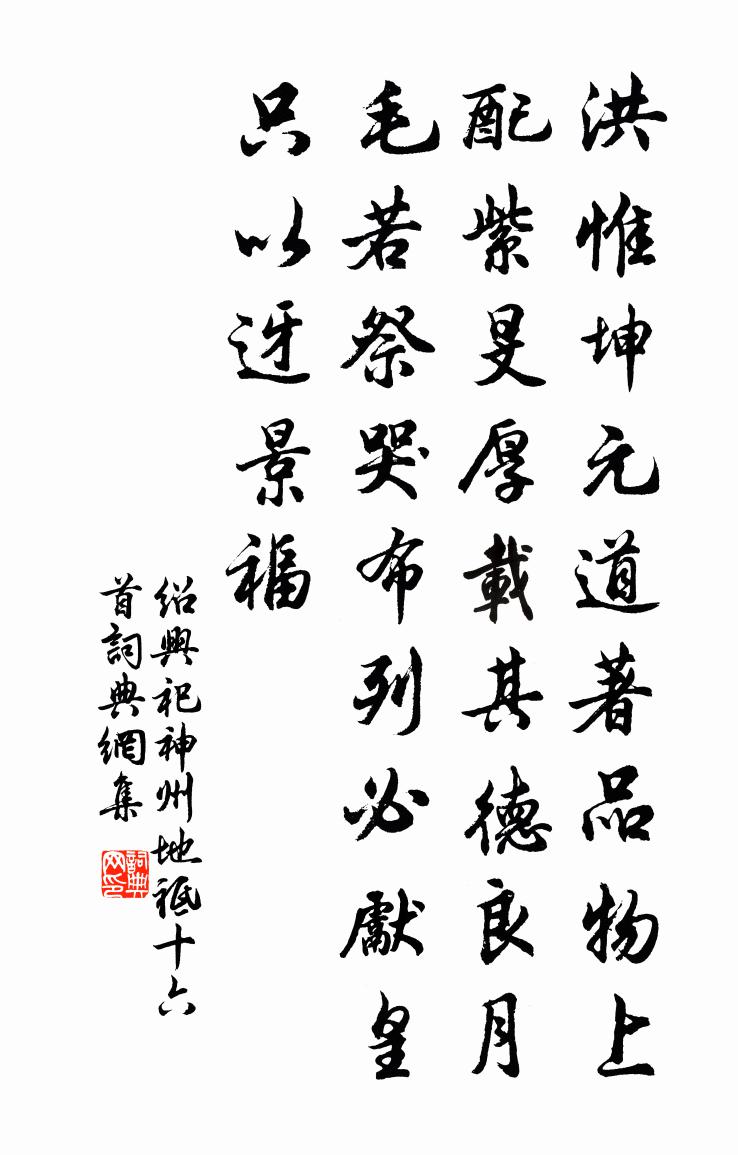 洪惟坤元道著品物上
配紫旻厚載其德良月
毛若祭哭布列必獻皇
只以迓景福
紹興祀神州地祇十六
首詞典網集
詞典网印